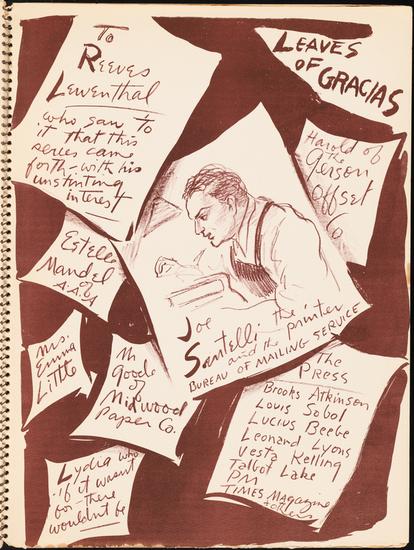 LEAVES
OF GRACIAS
To
Reeves
Lewenthal
who saw to
it that this
series came
forth-with his
unstinting
interest
Harold of
the
Gerson
Offset
Co
Estelle
Mandel
of
A.A.A
Joe
Santelli the printer
and the
BUREAU OF MAILING SERVICE
Mrs.
Emma
Little
Mr
Goode
of
Midwood
Paper Co.
The
Press
Brooks Atkinson
Louis Sobol
Lucius Beebe
Leonard Lyons
Vesta Kelling
Talbot Lake
PM
TIMES MAGAZINE
+ others
Lydia who
"if it wasn't
for there
wouldn't be